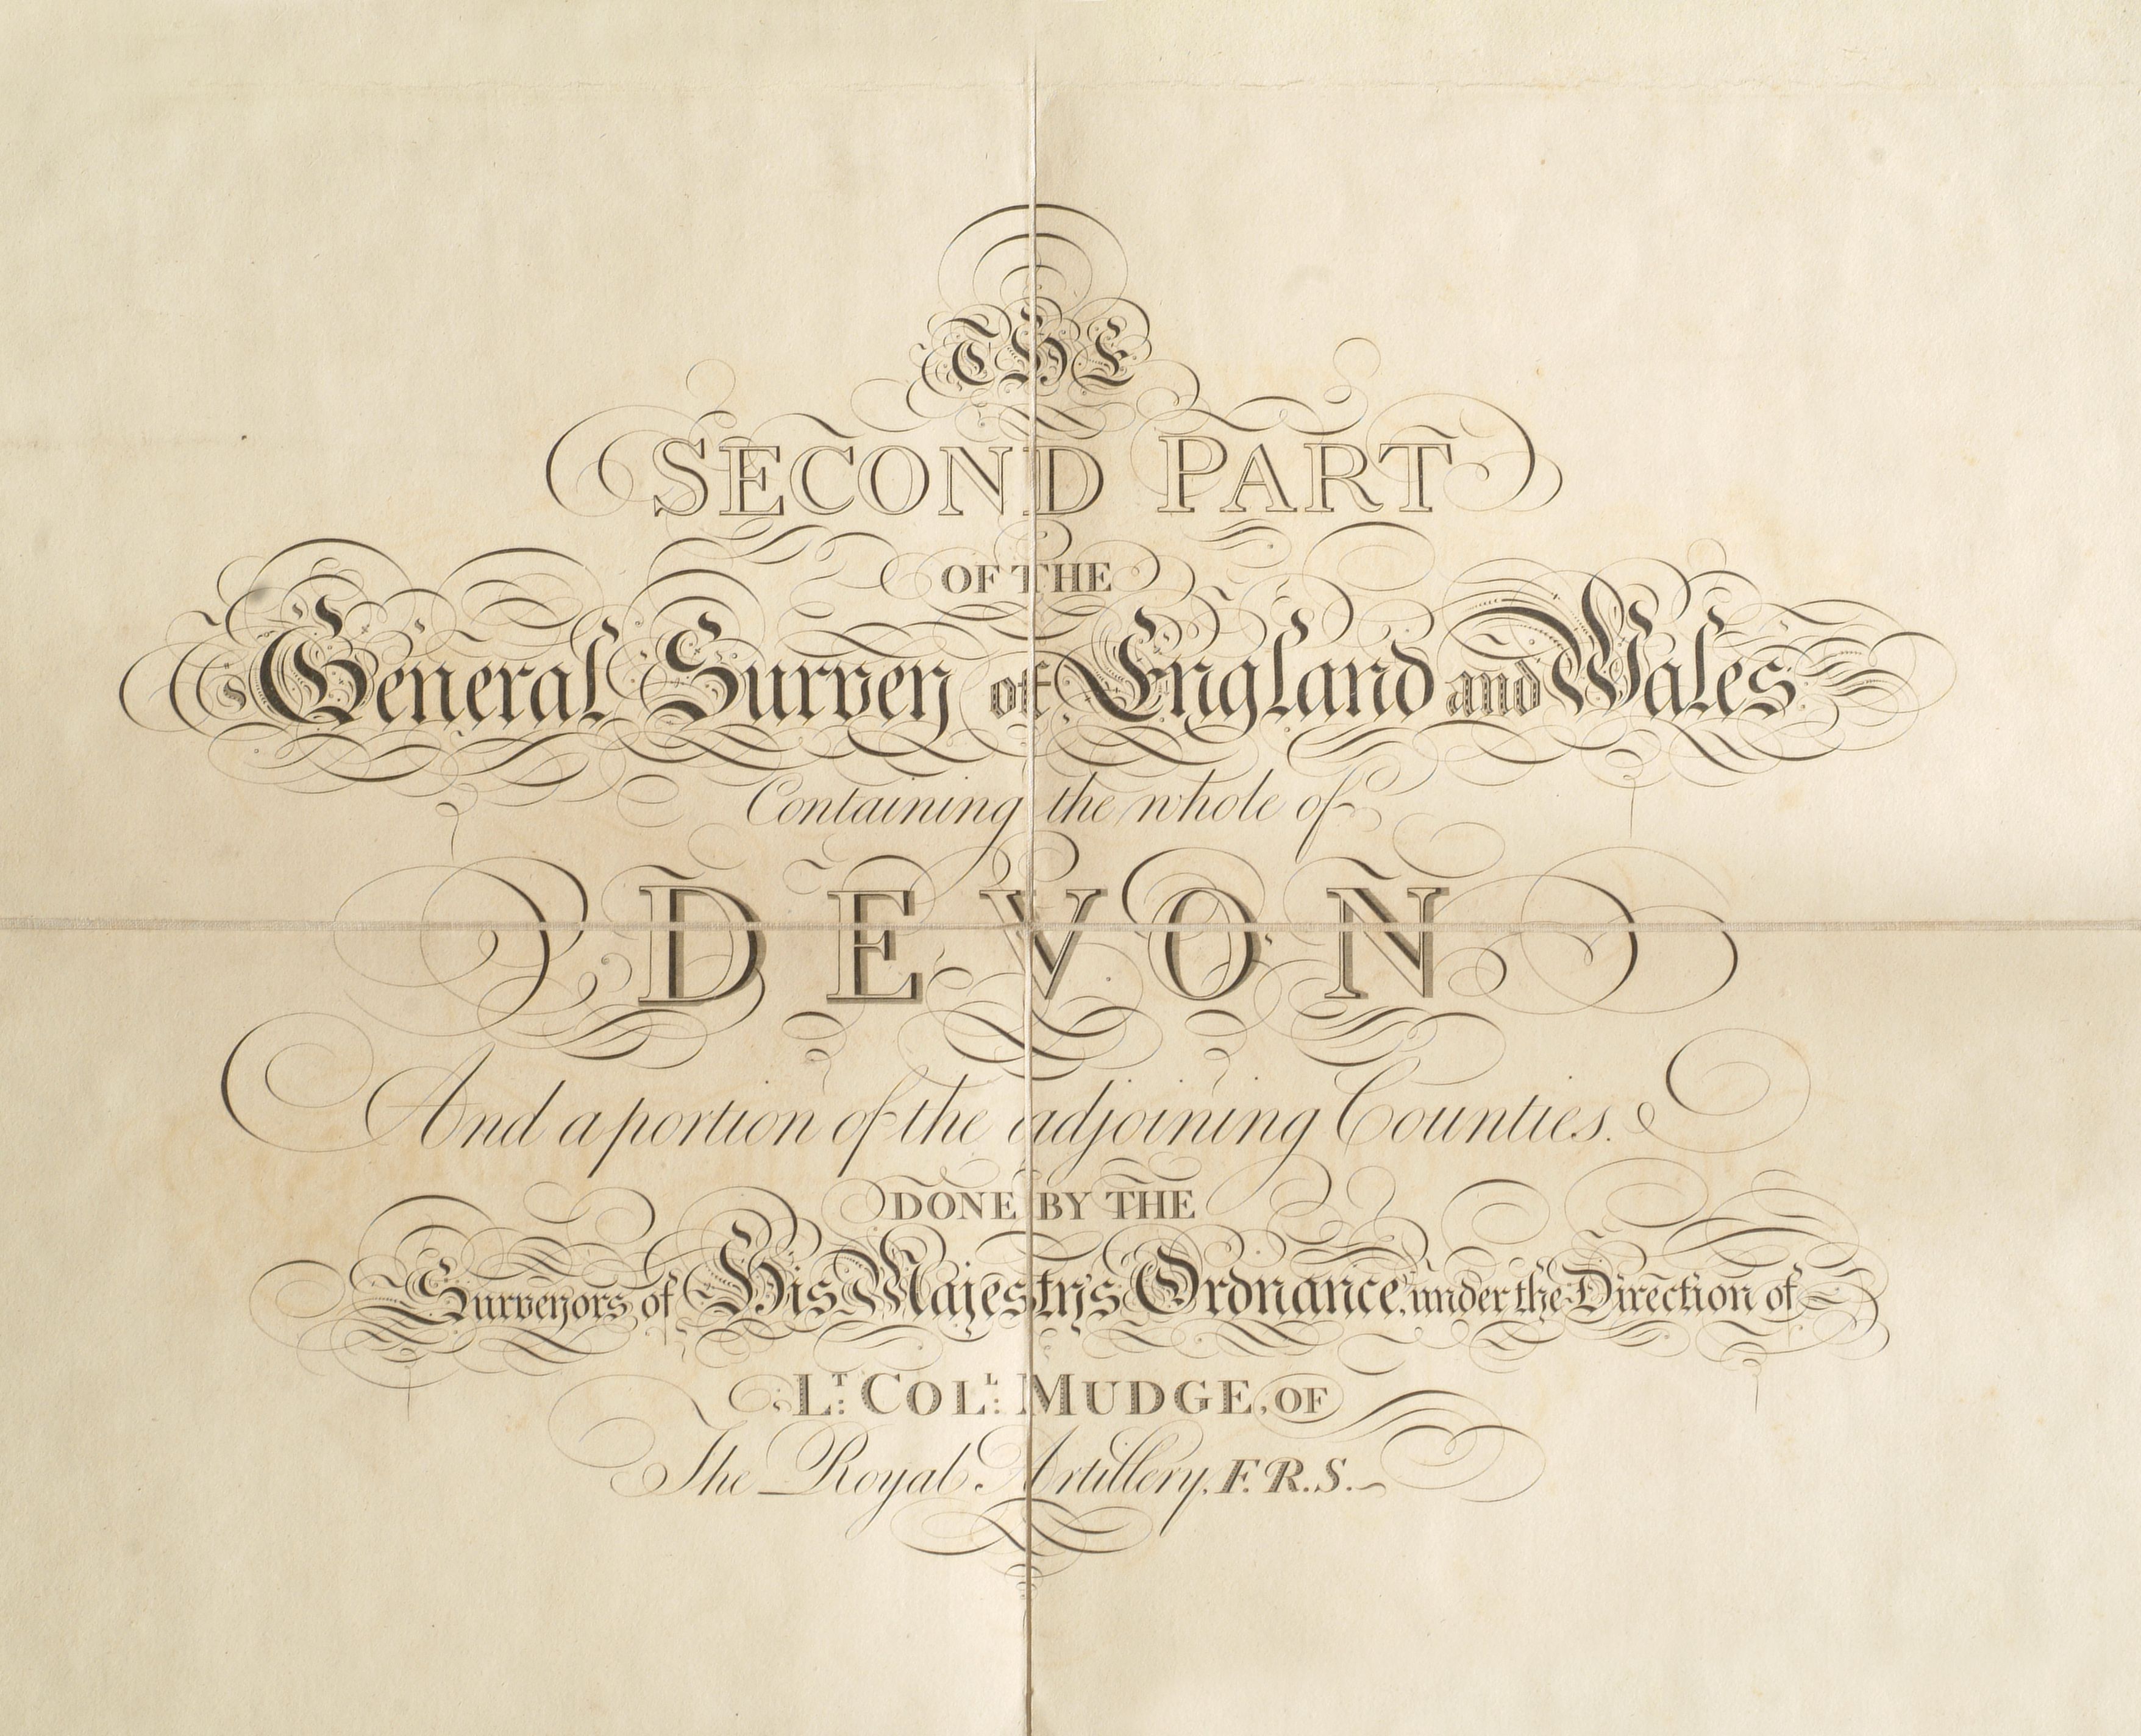 THE
SECOND PART
OF THE
General Survey of England and Wales
Containing the whole of
DEVON
And a portion of the adjoining Counties.
DONE BY THE
Surveyors of His Majesty's Ordnance, under the Direction of
LT: COLL: MUDGE, OF
The Royal Artillery, F.R.S.